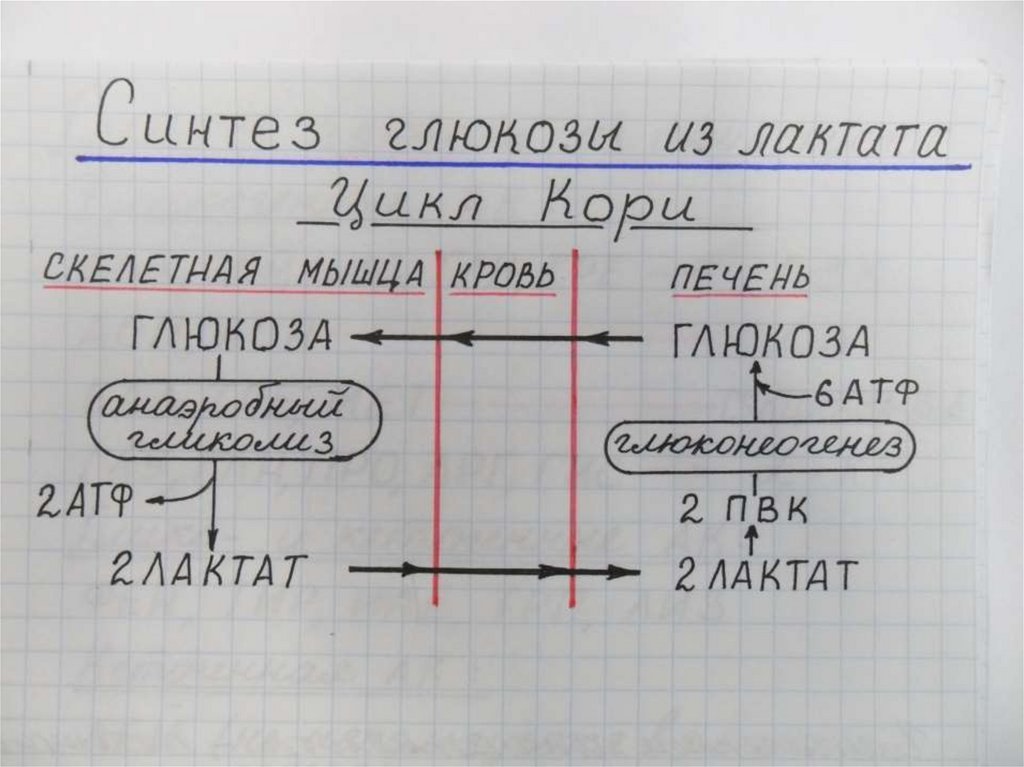 Синтез глюкозы из лактата
Цикл Кори
СКЕЛЕТНАЯ МЫШЦА КРОВЬ ПЕЧЕНЬ
ГЛЮКОЗА ГЛЮКОЗА
6 АТФ
анаэробный
гликолиз
глюконеогенез
2 АТФ
2 ПВК
2 ЛАКТАТ 2 ЛАКТАТ